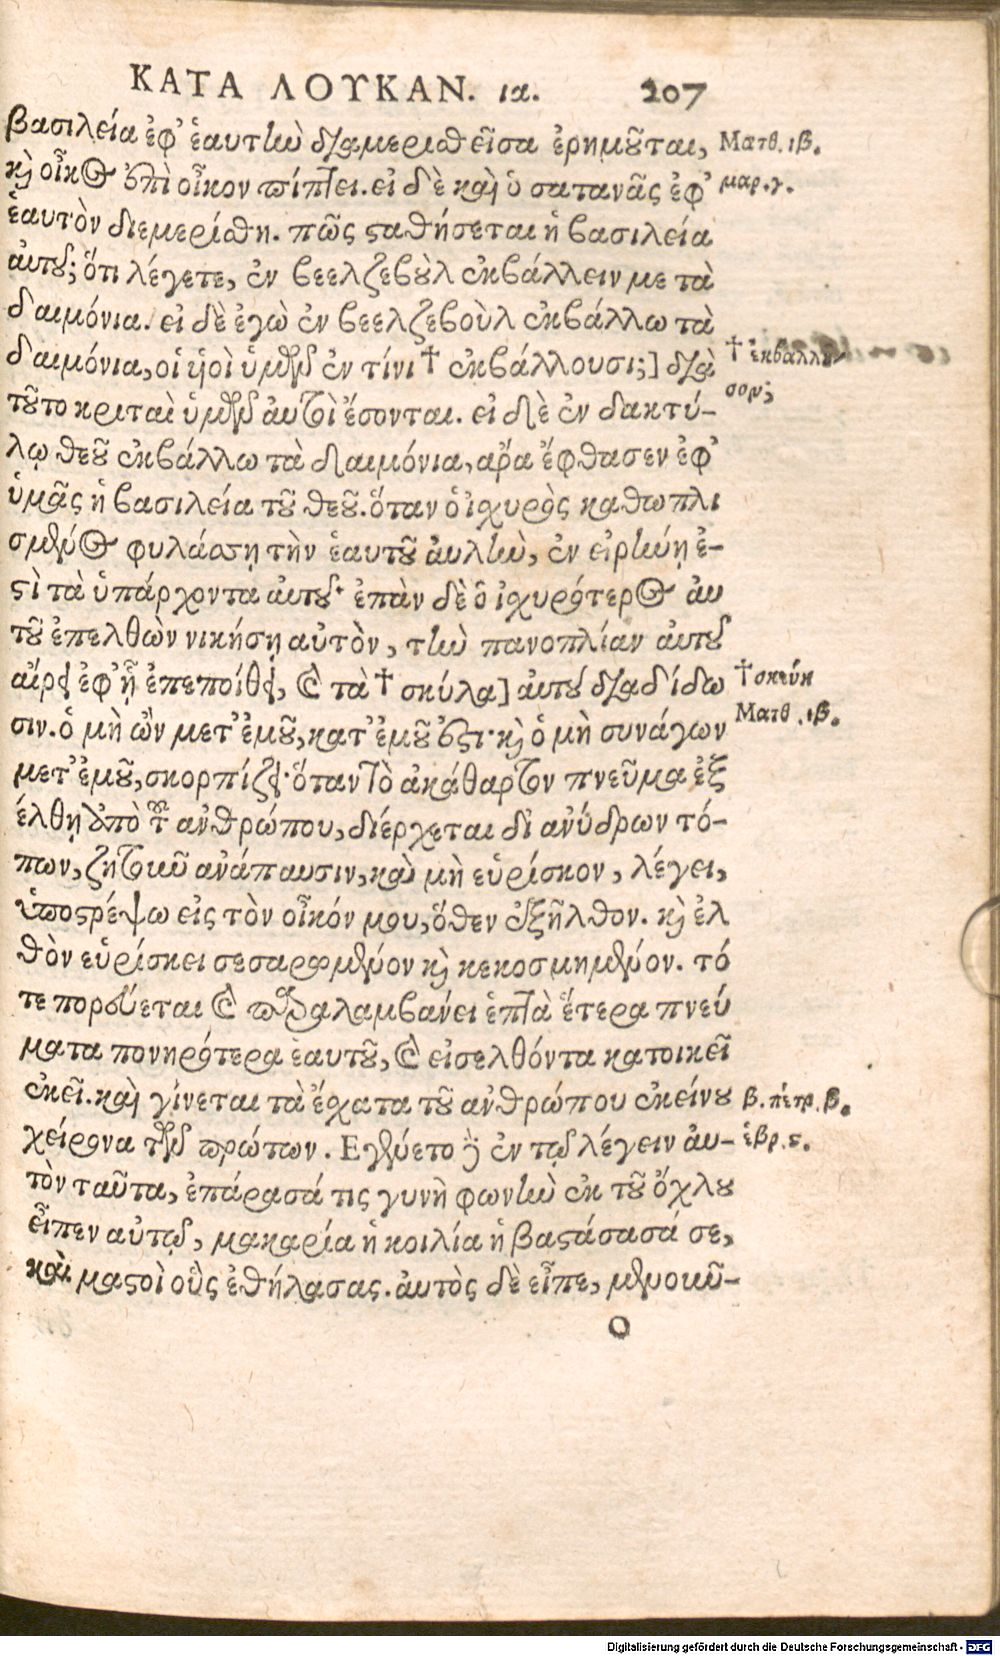 ΚΑΤΑ ΛΟΥΚΑΝ. ια. 207
βασιλεία ἐφ' ἑαυτὴν διαμερισθεῖσα ἐρημοῦται, Ματθ. ιβ.
κὶ οἶκος ἐπὶ οἶκον πίπτει. εἰ δὲ καὶ ὁ σατανᾶς ἐφ' μαρ. γ.
ἑαυτὸν διεμερίσθη. πῶς σαθήσεται ἡ βασιλεία
αὐτοῦ; ὅτι λέγετε, ἐν βεελζεβοὺλ ἐκβάλλειν με τὰ
δαιμόνια. εἰ δὲ ἐγὼ ἐν βεελζεβοὺλ ἐκβάλλω τὰ
δαιμόνια, οἱ ὑοὶ ὑμῶν ἐν τίνι † ἐκβάλλουσι;] διὰ † ἐκβαλλου
τοῦτο κριταὶ ὑμῶν αὐτοὶ ἔσονται. εἰ δὲ ἐν δακτύ- σον;
λῳ θεοῦ ἐκβάλλω τὰ δαιμόνια, ἄρα ἔφθασεν ἐφ'
ὑμᾶς ἡ βασιλεία τοῦ θεοῦ. ὅταν ὁ ἰσχυρὸς καθωπλι
σμένος φυλάσσῃ τὴν ἑαυτοῦ αὐλὴν, ἐν εἰρήνῃ ἐ-
στὶ τὰ ὑπάρχοντα αὐτοῦ· ἐπὰν δὲ ὁ ἰσχυρότερος αὐ
τοῦ ἐπελθὼν νικήσῃ αὐτὸν, τὴν πανοπλίαν αὐτοῦ
αἴρει ἐφ' ᾗ ἐπεποίθει, καὶ τὰ † σκύλα] αὐτοῦ διαδίδω † σκεύη
σιν. ὁ μὴ ὢν μετ' ἐμοῦ, κατ' ἐμοῦ ἐστι· κὶ ὁ μὴ συνάγων Ματθ. ιβ.
μετ' ἐμοῦ, σκορπίζει· ὅταν τὸ ἀκάθαρτον πνεῦμα ἐξ
έλθῃ ἀπὸ τοῦ ἀνθρώπου, διέρχεται δι ἀνύδρων τό-
πων, ζητοῦν ἀνάπαυσιν, καὶ μὴ εὑρίσκον, λέγει,
ὑποστρέψω εἰς τὸν οἶκόν μου, ὅθεν ἐξῆλθον. κὶ ἐλ
θὸν εὑρίσκει σεσαρωμένον κὶ κεκοσμημένον. τό
τε πορεύεται καὶ παραλαμβάνει ἑπτὰ ἕτερα πνεύ
ματα πονηρότερα ἑαυτοῦ, καὶ εἰσελθόντα κατοικεῖ
ἐκεῖ. καὶ γίνεται τὰ ἔσχατα τοῦ ἀνθρώπου ἐκείνου β. πέτρ. β.
χείρονα τῶν πρώτων. Ἐγένετο δὲ ἐν τῷ λέγειν αὐ- ἑβρ. ς.
τὸν ταῦτα, ἐπάρασά τις γυνὴ φωνὴν ἐκ τοῦ ὄχλου
εἶπεν αὐτῷ, μακαρία ἡ κοιλία ἡ βαστάσασά σε,
καὶ μαστοὶ οὓς ἐθήλασας. αὐτὸς δὲ εἶπε, μενοῦν-
O
Digitalisierung gefördert durch die Deutsche Forschungsgemeinschaft - DFG